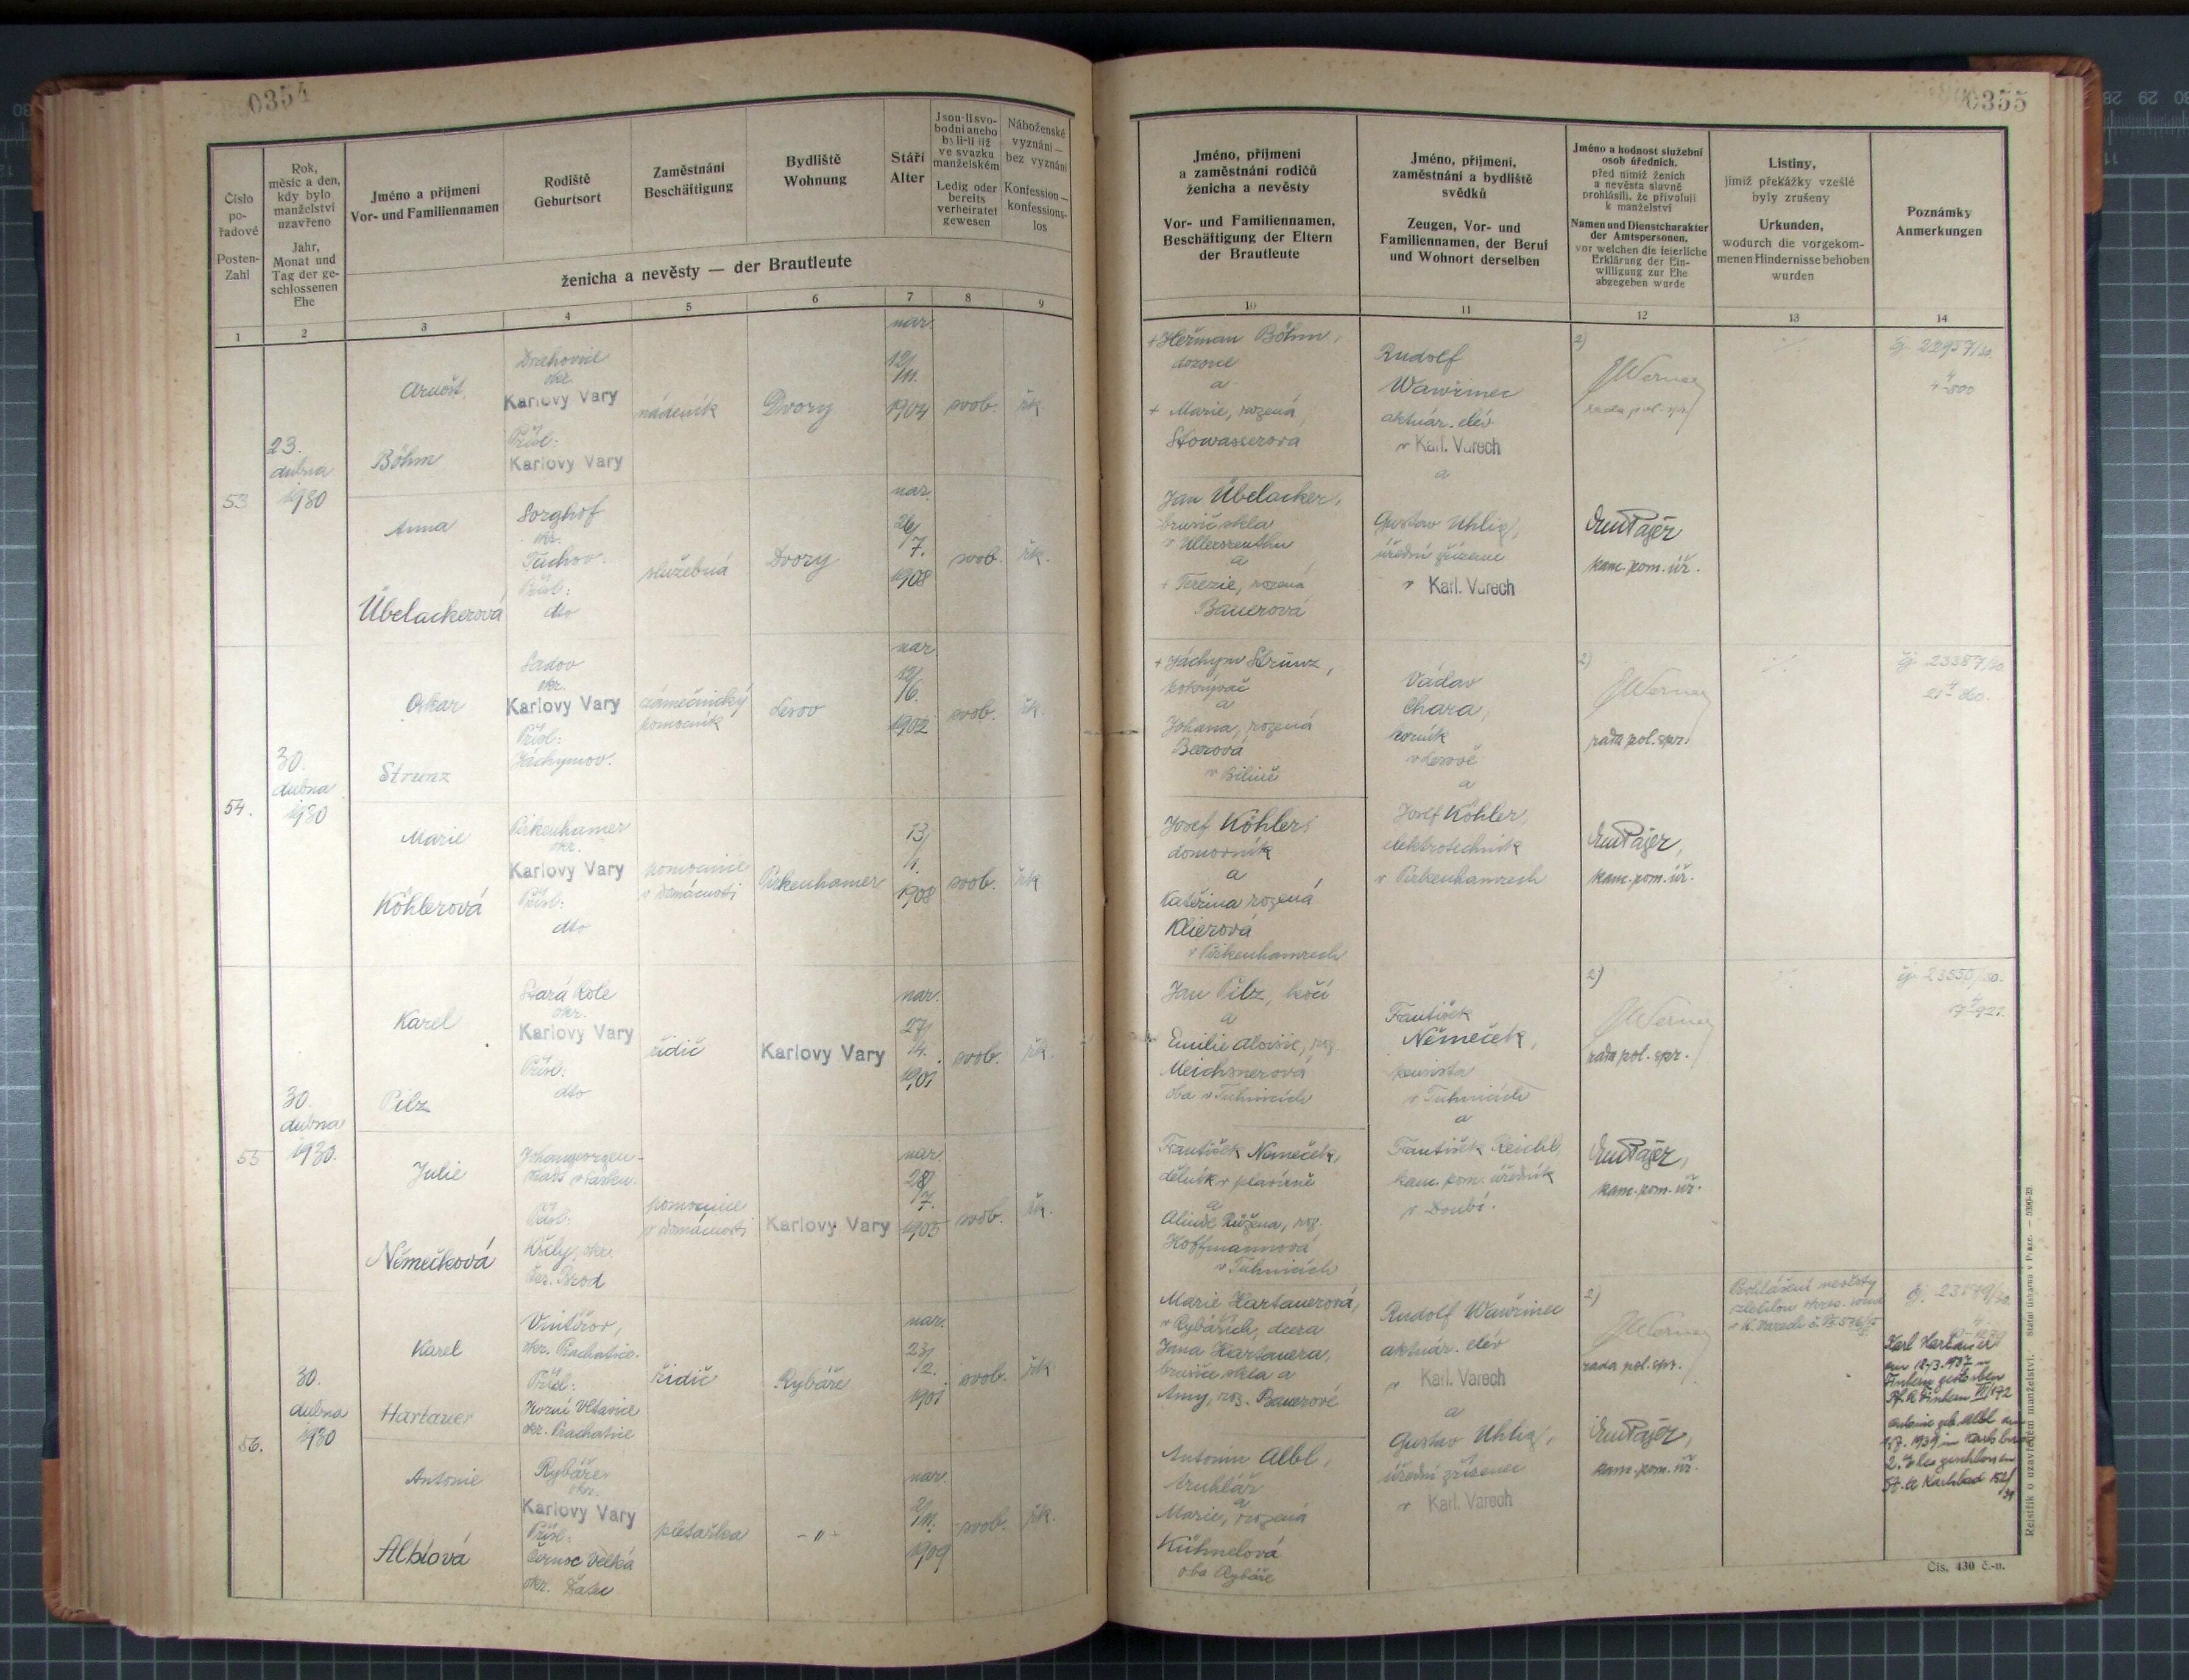 0354
Číslo
po-
řadové
Posten-
Zahl
Rok,
měsíc a den,
kdy bylo
manželství
uzavřeno
Jahr,
Monat und
Tag der ge-
schlossenen
Ehe
Jméno a příjmení
Vor- und Familiennamen
Rodiště
Geburtsort
Zaměstnání
Beschäftigung
Bydliště
Wohnung
Stáří
Alter
Json-li svo-
bodni anebo
byli-li již
ve svazku
manželském
Ledig oder
bereits
verheiratet
gewesen
Náboženské
vyznání —
bez vyznání
Konfession —
konfessions-
los
ženicha a nevěsty — der Brautleute
1
2
3
4
5
6
7
8
9
53
23.
dubna
1930
Arnošt
Böhm
Drahovice
okr.
Karlovy Vary
Přísl:
Karlovy Vary
nádeník
Dvory
nar.
12/
11.
1904
svob.
řk
Anna
Übelackerová
Sorghof
okr.
Tachov
Přísl:
dto
služebná
Dvory
nar.
26/
7.
1908
svob.
řk.
54.
30.
dubna
1930
Oskar
Strunz
Sadov
okr.
Karlovy Vary
Přísl:
Jáchymov.
zámečnický
pomocník
Lesov
nar
12/
6.
1902
svob.
řk.
Marie
Köhlerová
Pirkenhamer
okr.
Karlovy Vary
Přísl:
dto
pomocnice
v domácnosti
Pirkenhamer
13/
4.
1908
svob.
řk
55
30.
dubna
1930.
Karel
Pilz
Stará Role
okr.
Karlovy Vary
Přísl:
dto
řidič
Karlovy Vary
nar.
27/
1901
svob.
řk.
Julie
Němečková
Johanngeorgen-
Přísl:
Kšely, okr.
Čes. Brod
pomocnice
v domácnosti
Karlovy Vary
nar.
28/
7.
1905
svob.
řk.
56.
30.
dubna
1930
Karel
Hartauer
Vintířov,
okr. Prachatice.
Přísl:
Horní Vltavice
okr. Prachatice
řidič
Rybáře
nar.
23/
12.
1901
svob.
řk
Antonie
Alblová
Rybáře
okr.
Karlovy Vary
Přísl:
Černoc Velká
okr. Žatec
pletařka
- " -
nar.
2/
11.
1909
svob.
řk.
0355
Jméno, příjmení
a zaměstnání rodičů
ženicha a nevěsty
Vor- und Familiennamen,
Beschäftigung der Eltern
der Brautleute
Jméno, příjmení,
zaměstnání a bydliště
svědků
Zeugen, Vor- und
Familiennamen, der Beruf
und Wohnort derselben
Jméno a hodnost služební
osob úředních,
před nimiž ženich
a nevěsta slavně
prohlásili, že přivolují
k manželství
Namen und Dienstcharakter
der Amtspersonen,
vor welchen die feierliche
Erklärung der Ein-
willigung zur Ehe
abgegeben wurde
Listiny,
jimiž překážky vzešlé
byly zrušeny
Urkunden,
wodurch die vorgekom-
menen Hindernisse behoben
wurden
Poznámky
Anmerkungen
10
11
12
13
14
+ Heřman Böhm,
dozorce
a
+ Marie, rozená
Stowasserová
Rudolf
Wawřinec
aktuár. elév
v Karl. Varech
a
2)
JWerner
rada pol. spr.
čj. 22957/30.
Jan Übelacker,
brusič skla
v Ullersreuthu
a
+ Terezie, rozená
Bauerová
Gustav Uhlig,
úřední zřízenec
v Karl. Varech
Em Pajer
kanc. pom. úř.
+ Jáchym Strunz,
pokrývač
a
Johana, rozená
Beerová
v Bílině
Václav
Chara,
horník
v Lesově
a
2)
JWerner
rada pol. spr.
čj. 23387/30
Josef Köhler,
domovník
a
Kateřina rozená
Klierová
v Pirkenhamrech
Josef Köhler,
elektrotechnik
v Pirkenhamrech
Em Pajer,
kanc. pom. úř.
Jan Pilz, kočí
a
Emilie Aloisie, roz.
Meichsnerová
oba v Tuhnicích
František
Němeček,
pensista
v Tuhnicích
a
2)
JWerner
rada pol. spr.
František Nemeček,
dělník v plavírně
a
Alinde Růžena, roz.
Hoffmannová
v Tuhnicích
František Reichl,
kanc. pom. úředník
v Doubí.
Em Pajer,
kanc. pom. úř.
Marie Hartauerová,
v Rybářích, dcera
Jana Hartauera,
brusiče skla a
Anny, roz. Bauerové
Rudolf Wawřinec
aktuár. elév
v Karl. Varech
a
2)
JWerner
rada pol. spr.
Prohlášení nevěsty
Karl Hartauer
am 18.3.1937 in
Fintern gestorben
Antonie geb. Albl am
1939 in Karlsbad
2. Ehe geschlossen
St. A. Karlsbad 152/
39
Antonín Albl,
truhlář
a
Marie, rozená
Kühnelová
oba Rybáře
Gustav Uhlig,
úřední zřízenec
v Karl. Varech
Em Pajer,
kanc. pom. úř.
Rejstřík o uzavřeném manželství. Státní tiskárna v Praze. — 5390-23.
Čís. 430 č.-n.